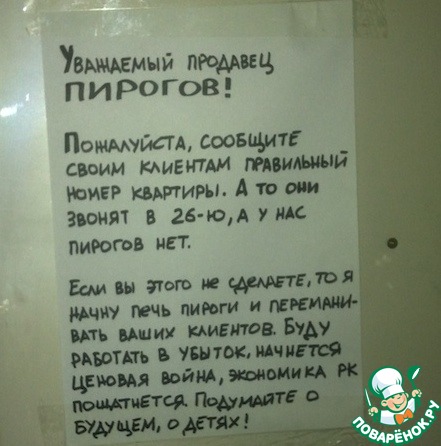 Уважаемый продавец
ПИРОГОВ!
Пожалуйста, сообщите
своим клиентам правильный
номер квартиры. А то они
звонят в 26-ю, а у нас
пирогов нет.
Если вы этого не сделаете, то я
начну печь пироги и перемани-
вать ваших клиентов. Буду
работать в убыток, начнется
ценовая война, экономика РК
пошатнется. Подумайте о
будущем, о детях!
ПОВАРЁНОК.РУ